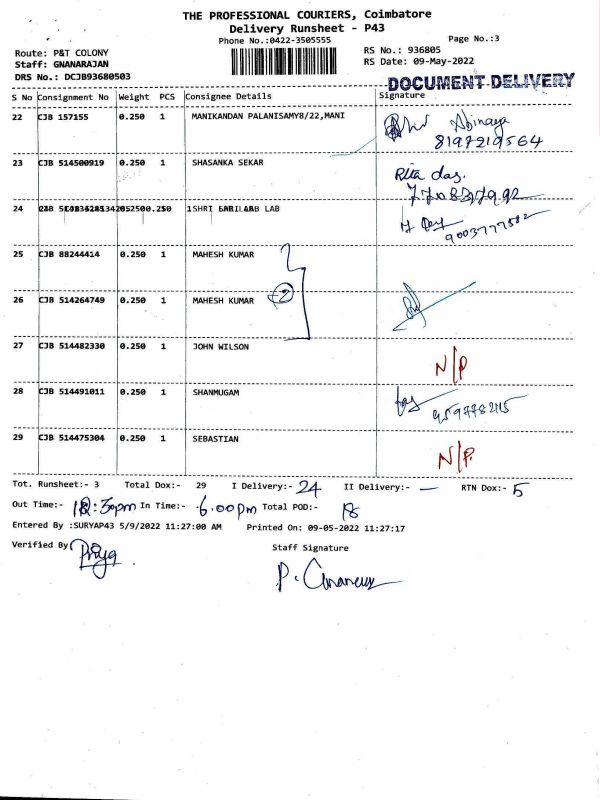 THE PROFESSIONAL COURIERS, Coimbatore
Delivery Runsheet - P43
Phone No.:0422-3505555
Page No.:3
Route: P&T COLONY
RS No.: 936805
Staff: GNANARAJAN
RS Date: 09-May-2022
DRS No.: DCJB93680503
DOCUMENT DELIVERY
S No Consignment No Weight PCS Consignee Details Signature
22 CJB 157155 0.250 1 MANIKANDAN PALANISAMY8/22,MANI
Abinaya
8197219564
23 CJB 514500919 0.250 1 SHASANKA SEKAR
Rita das.
24 1SHRI LAB
9003777582
25 CJB 88244414 0.250 1 MAHESH KUMAR
26 CJB 514264749 0.250 1 MAHESH KUMAR
2
27 CJB 514482330 0.250 1 JOHN WILSON
N/P
28 CJB 514491011 0.250 1 SHANMUGAM
29 CJB 514475304 0.250 1 SEBASTIAN
N/P.
Tot. Runsheet:- 3 Total Dox:- 29 I Delivery:- 24 II Delivery:- — RTN Dox:- 5
Out Time:- In Time:- 6.00pm Total POD:- 18
Entered By :SURYAP43 5/9/2022 11:27:00 AM Printed On: 09-05-2022 11:27:17
Verified By Priya
Staff Signature